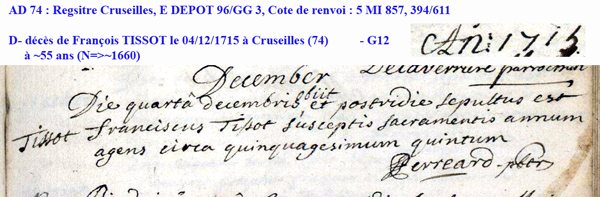 AD 74 : Regsitre Cruseilles, E DEPOT 96/GG 3, Cote de renvoi : 5 MI 857, 394/611
D- décès de François TISSOT le 04/12/1715 à Cruseilles (74) - G12
à ~55 ans (N=>~1660)
An: 1715.
December
Die quartâ decembris obiit et postridie sepultus est
Tissot franciscus Tissot susceptis sacramentis annum
agens circa quinquagesimum quintum
Perreard